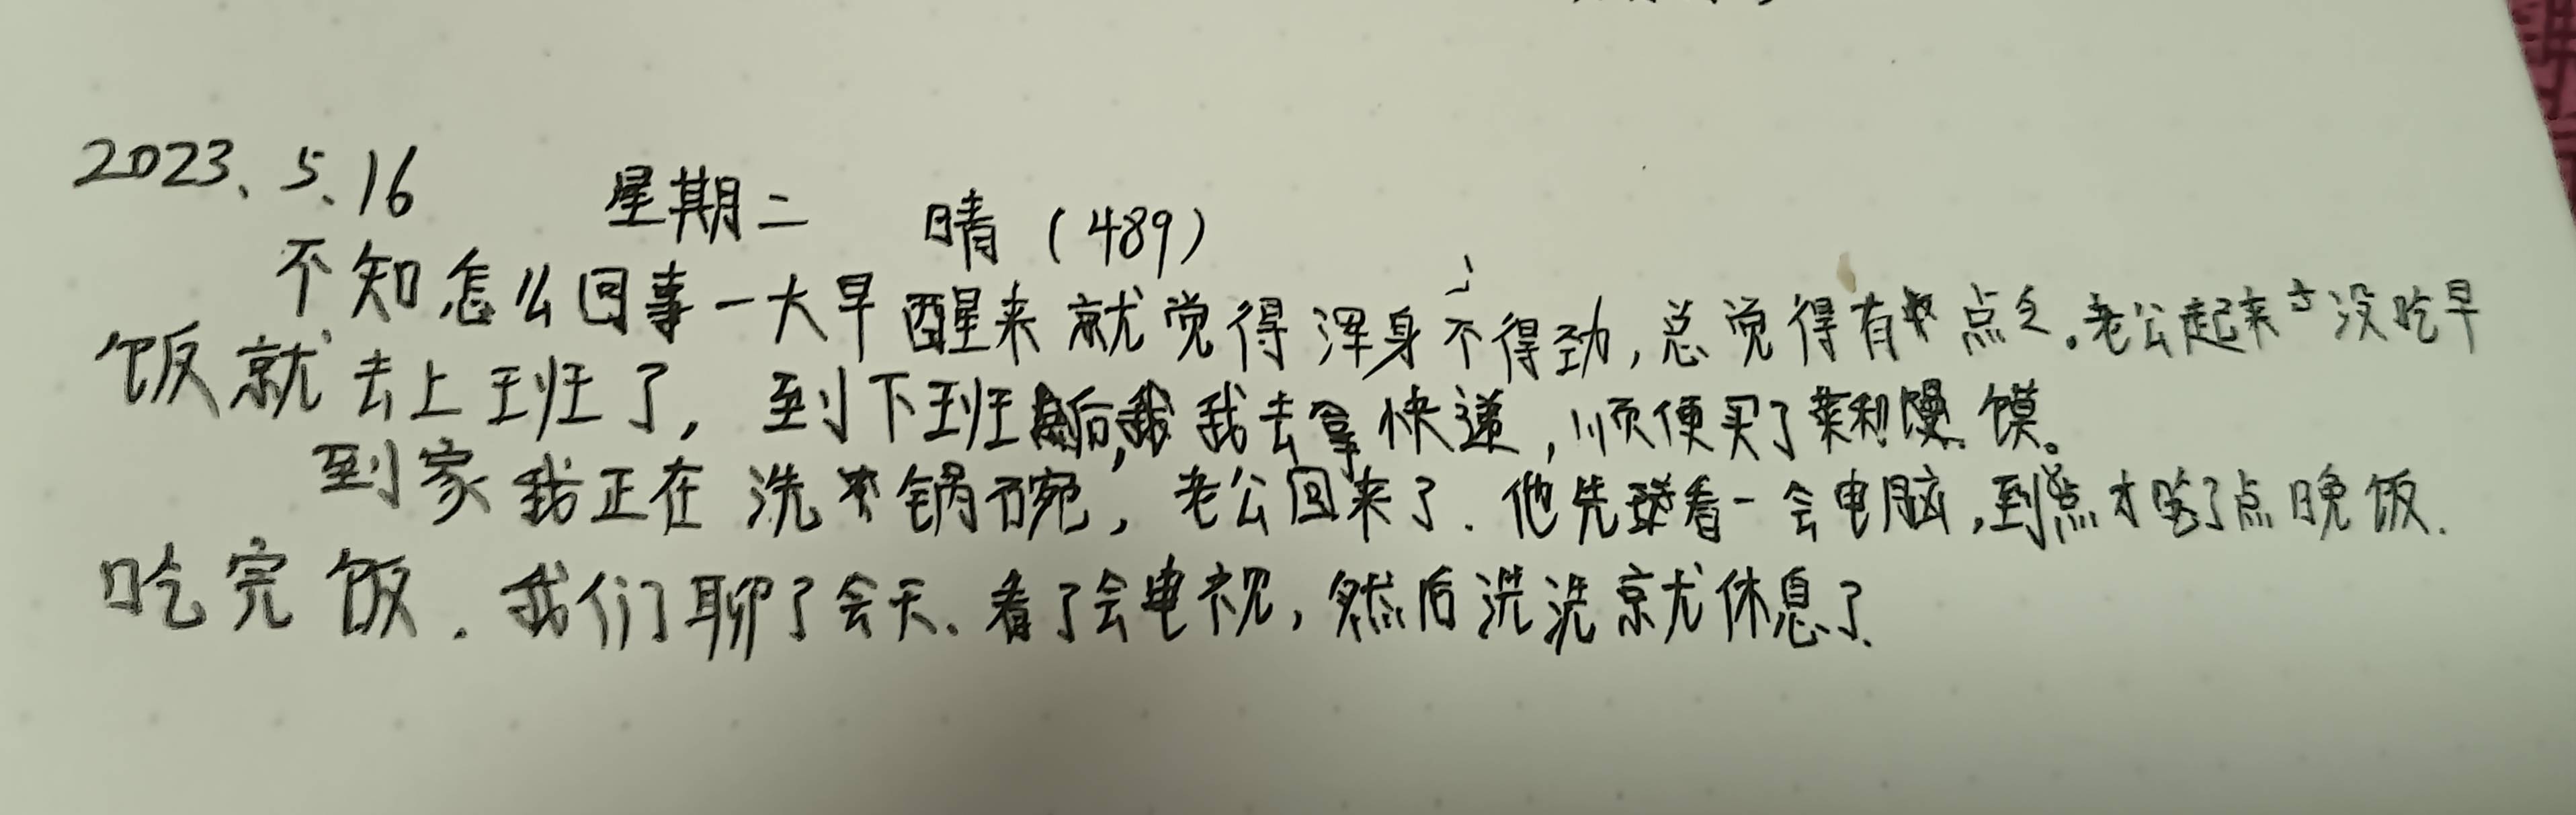 2023、5、16 星期二 晴（489）
不知怎么回事一大早醒来就觉得浑身不得劲，总觉得有点乏。老公起来没吃早
饭就去上班了，到下班后，我去拿快递，顺便买了菜和馒馍。
到家我正在洗锅碗，老公回来了．他先看一会电脑，到点才吃了点晚饭．
吃完饭．我们聊了会天、看了会电视，然后洗洗就休息了．